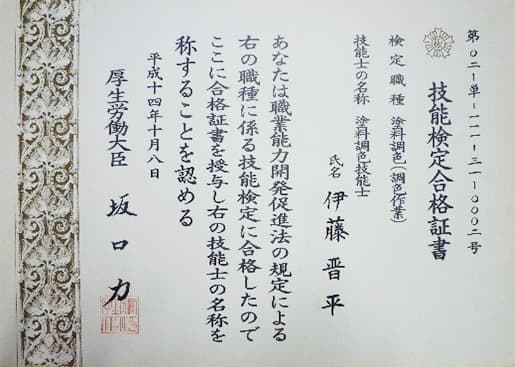 第〇二一単一一一一三一一〇〇〇二号
技能検定合格証書
検定職種 塗料調色(調色作業)
技能士の名称 塗料調色技能士
氏名 伊藤晋平
あなたは職業能力開発促進法の規定による
右の職種に係る技能検定に合格したので
ここに合格証書を授与し右の技能士の名称を
称することを認める
平成十四年十月八日
厚生労働大臣 坂口力